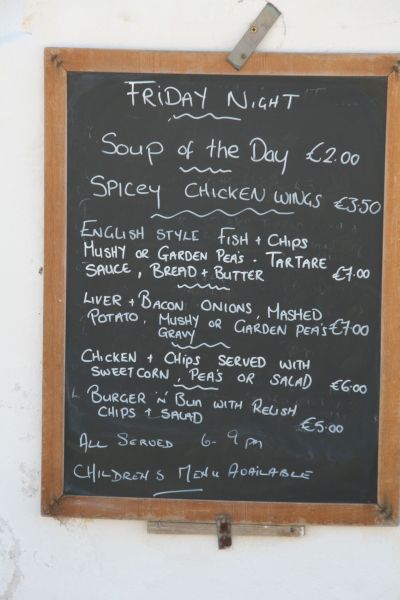 FRIDAY NIGHT
SOUP OF THE DAY £2.00
SPICEY CHICKEN WINGS €3.50
ENGLISH STYLE FISH + CHIPS
MUSHY OR GARDEN PEA'S . TARTARE
SAUCE, BREAD + BUTTER €7.00
LIVER + BACON ONIONS, MASHED
POTATO, MUSHY OR GARDEN PEA'S €7.00
GRAVY
CHICKEN + CHIPS SERVED WITH
SWEETCORN, PEA'S OR SALAD €6.00
BURGER 'N' BUN WITH RELISH
CHIPS + SALAD €5.00
ALL SERVED 6-9 pm
CHILDRENS MENU AVAILABLE